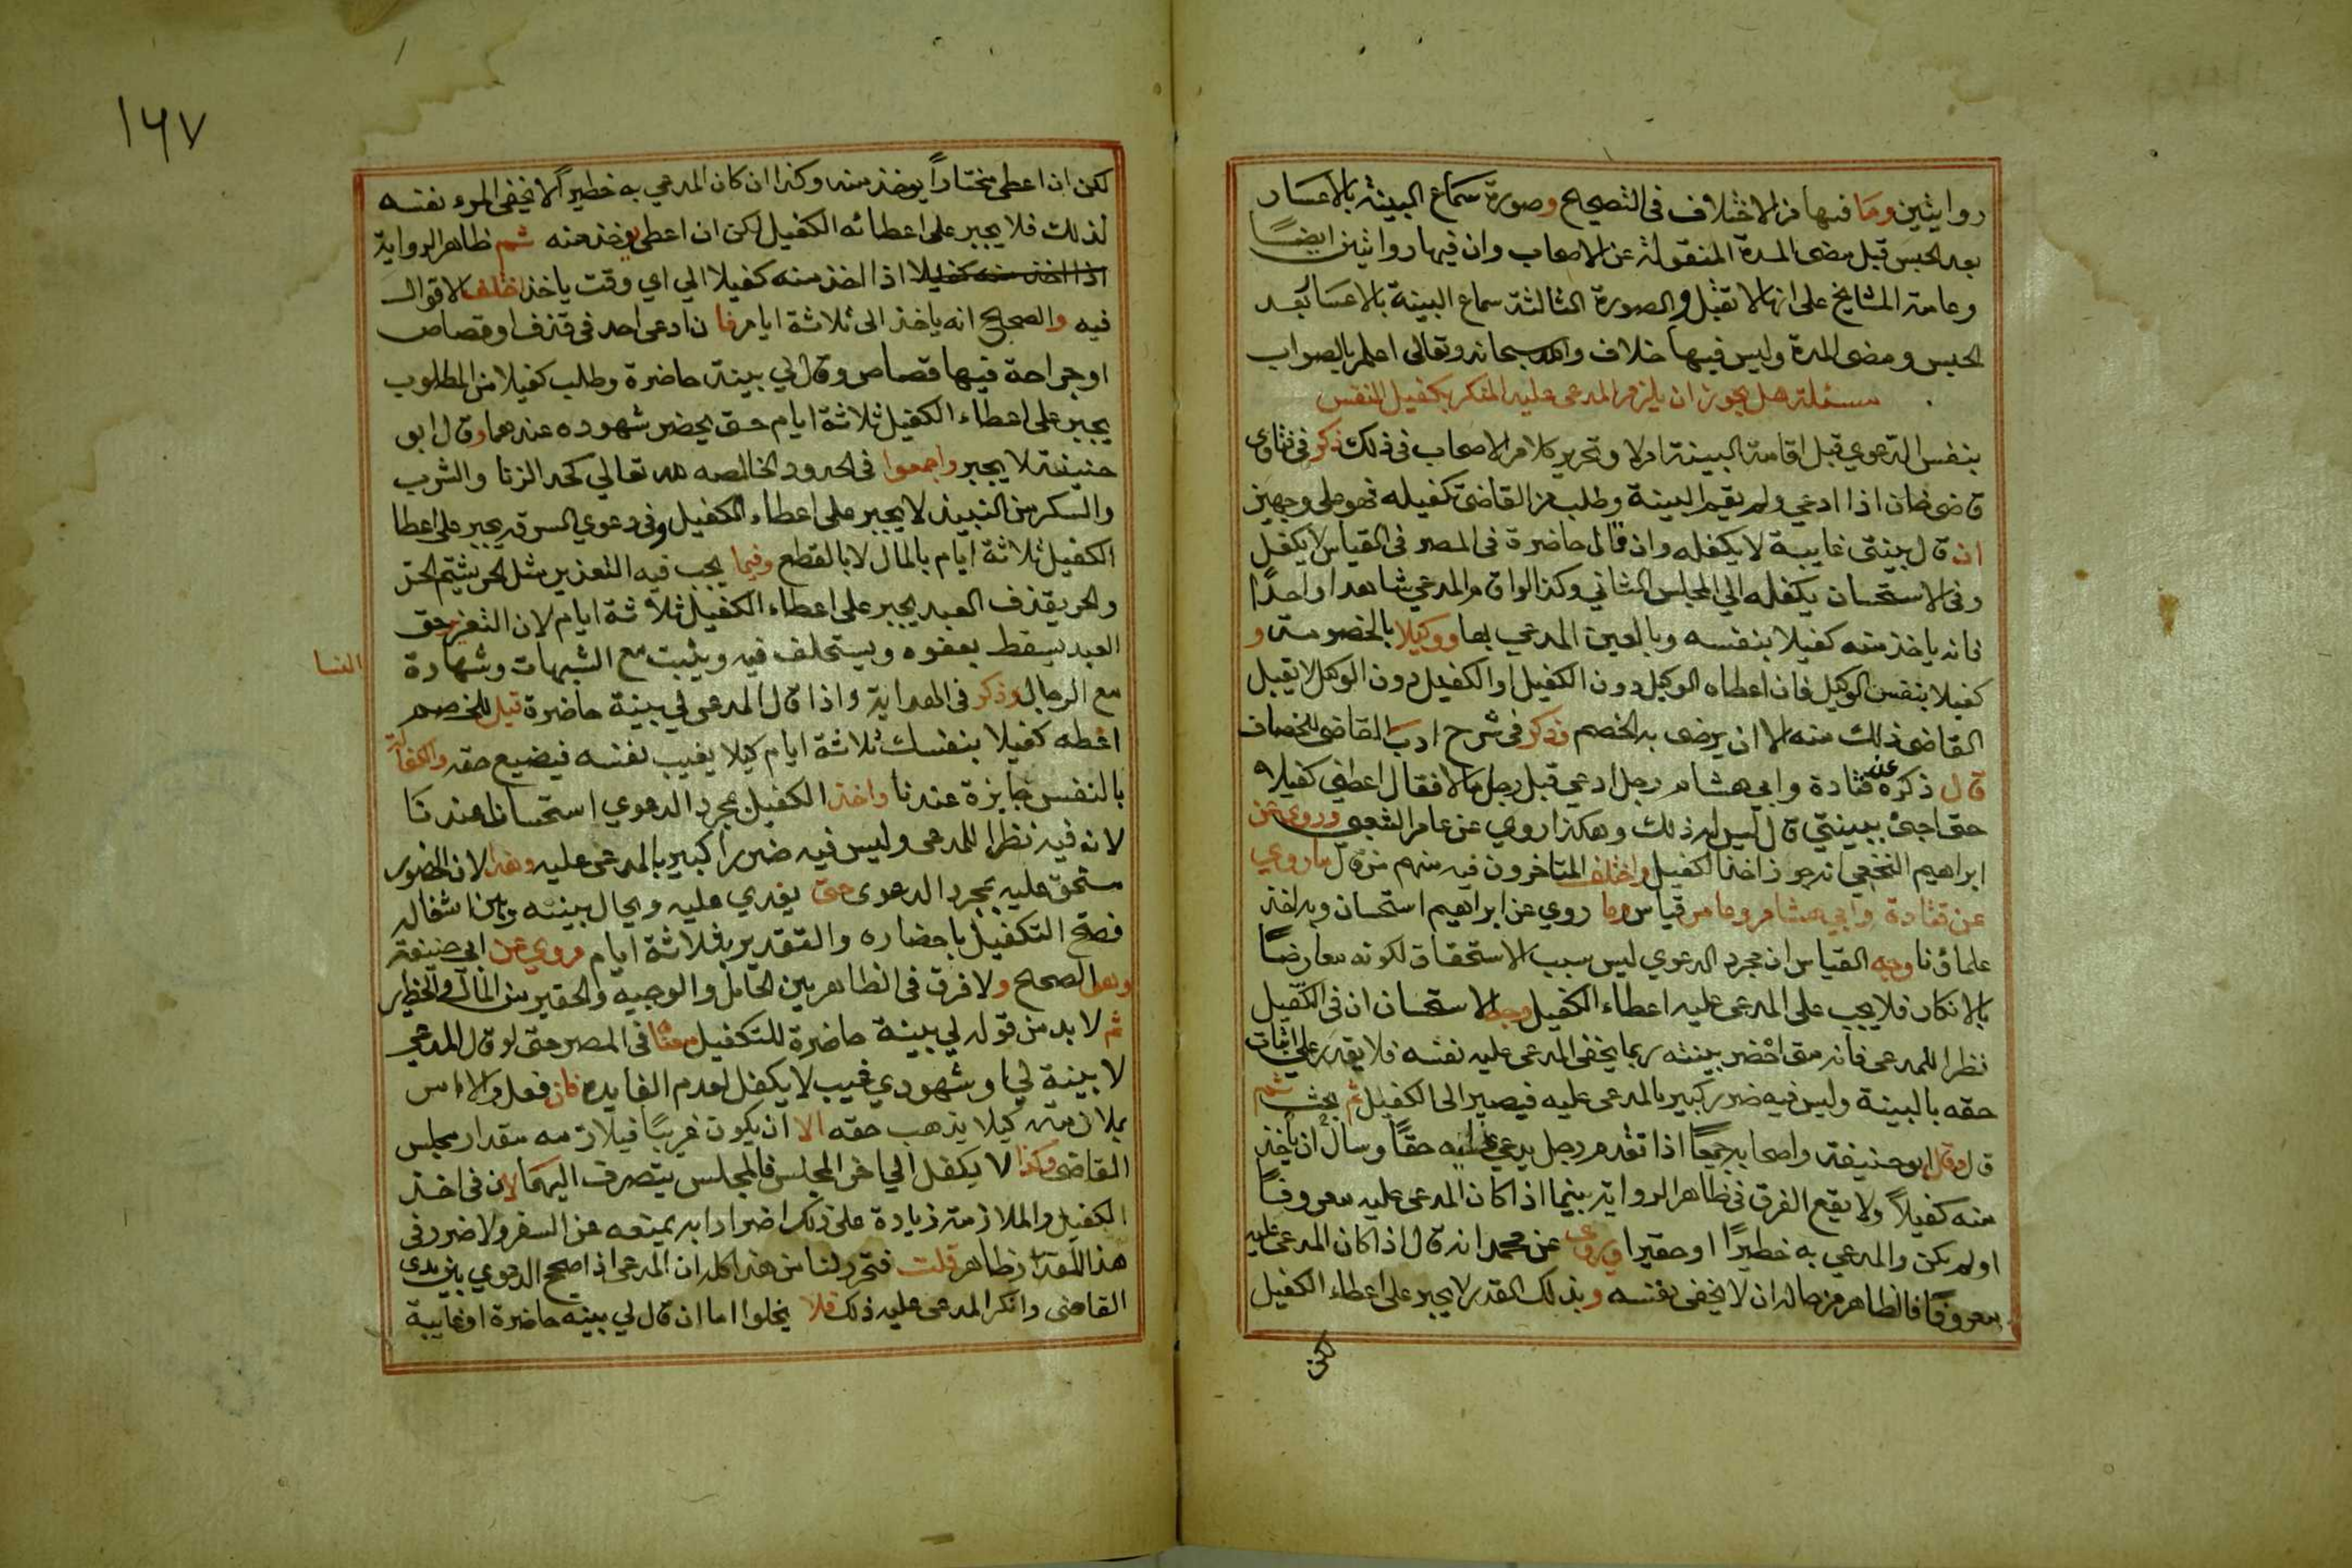 روايتين وما فيها من الاختلاف في التصحيح وصورة سماع البينة بالاعسار
بعد الحبس قبل مضى المدة المنقولة عن الاصحاب وان فيها روايتين ايضًا
وعامة المشايخ على انها لا تقبل والصورة الثالثة سماع البينة بالاعسار بعد
الحبس ومضى المدة وليس فيها خلاف والله سبحانه وتعالى اعلم بالصواب
مسئلة هل يجوز ان يلزم المدعى عليه المنكر بكفيل النفس
بنفس الدعوي قبل اقامة البينة ام لا وتحرير كلام الاصحاب في ذلك ذكر في فتاوى
قاضى خان اذا ادعي ولم يقم البينة وطلب من القاضى كفيله فهو على وجهين
ان قال بينتى غايبة لا يكفله وان قال حاضرة في المصر في القياس لا يكفل
وفي الاستحسان يكفله الي المجلس الثاني وكذا لو اقام المدعي شاهدا واحدًا
فانه ياخذ منه كفيلا بنفسه وبالعين المدعي بها ووكيلا بالخصومة و
كفيلا بنفس الوكيل فان اعطاه الوكيل دون الكفيل او الكفيل دون الوكيل لا يقبل
القاضى ذلك منه الا ان يرضى به الخصم وذكر في شرح ادب القاضى للخصاف
قال ذكره عن قتادة وابي هشام رجل ادعي قبل رجل مالا فقال اعطني كفيلا
حتى اجئ ببينتي قال ليس له ذلك وهكذا روي عن عامر الشعبى وروى عن
ابراهيم النخعي انه جوز اخذ الكفيل واختلف المتاخرون فيه منهم من قال ما روي
عن قتادة وابي هشام وعامر قياس وما روي عن ابراهيم استحسان وبه اخذ
علماؤنا وجه القياس ان مجرد الدعوي ليس سبب الاستحقاق لكونه معارضًا
بالانكار فلا يجب على المدعى عليه اعطاء الكفيل وجه الاستحسان ان في الكفيل
نظرا للمدعى فانه متى احضر بينته ربما يخفى المدعى عليه نفسه فلا يقدر على اثبات
حقه بالبينة وليس فيه ضرر كبير بالمدعى عليه فيصير الى الكفيل ثم بحث ثم
قال وقال ابو حنيفة واصحابه جميعًا اذا تقدم رجل يدعي عليه حقًا وسال ان ياخذ
منه كفيلاً ولا يقع الفرق في ظاهر الرواية بينما اذا كان المدعى عليه معروفًا
او لم يكن والمدعي به خطيرًا او حقيرا وروى عن محمد انه قال اذا كان المدعى عليه
معروفًا فالظاهر من حاله ان لا يخفى نفسه وبذلك القدر لا يجبر على اعطاء الكفيل
لكن
١٦٧
لكن ان اعطى مختاراً يوخذ منه وكذا ان كان المدعي به خطيراً لا يخفى المرء نفسه
لذلك فلا يجبر على اعطائه الكفيل لكن ان اعطى يوخذ منه ثم ظاهر الرواية
اذا اخذ منه كفيلا اذا اخذ منه كفيلا الي اي وقت ياخذ اختلف الاقوال
فيه والصحيح انه ياخذ الى ثلاثة ايام فان ادعى احد في قذف او قصاص
او جراحة فيها قصاص وقال لي بينة حاضرة وطلب كفيلا من المطلوب
يجبر على اعطاء الكفيل ثلاثة ايام حتى يحضر شهوده عندهما وقال ابو
حنيفة لا يجبر واجمعوا في الحدود الخالصه لله تعالي كحد الزنا والشرب
والسكر من النبيذ لا يجبر على اعطاء الكفيل وفي دعوي السرقة يجبر على اعطا
الكفيل ثلاثة ايام بالمال لا بالقطع وفيما يجب فيه التعزير مثل الحر يشتم الحر
والحر يقذف العبد يجبر على اعطاء الكفيل ثلاثة ايام لان التعزير حق
العبد يسقط بعفوه ويستحلف فيه ويثبت مع الشبهات وشهادة
النسا
مع الرجال وذكر في الهداية واذا قال المدعى لي بينة حاضرة قيل للخصم
اعطه كفيلا بنفسك ثلاثة ايام كيلا يغيب نفسه فيضيع حقه والكفالة
بالنفس جايزة عندنا واخذ الكفيل بمجرد الدعوي استحسان عندنا
لان فيه نظرا للمدعى وليس فيه ضررا كبير بالمدعى عليه وهذا لان الحضور
مستحق عليه بمجرد الدعوى حتى يعدي عليه ويحال بينه وبين اشغاله
فصح التكفيل باحضاره والتقدير بثلاثة ايام مروي عن ابى حنيفة
وهو الصحيح ولا فرق في الظاهر بين الخامل والوجيه والحقير من المال والخطير
ثم لا بد من قوله لي بينة حاضرة للتكفيل معناه في المصر حتى لو قال المدعي
لا بينة لي او شهودي غيب لا يكفل لعدم الفايده فان فعل والا امر
بملازمته كيلا يذهب حقه الا ان يكون غريبًا فيلازمه مقدار مجلس
القاضى وكذا لا يكفل الي اخر المجلس فالمجلس يتصرف اليهما لان في اخذ
الكفيل والملازمة زيادة على ذلك اضرارا به يمنعه عن السفر ولا ضرر في
هذا المقدار ظاهر قلت فتحرر لنا من هذا كله ان المدعى اذا صحح الدعوي بين يدى
القاضى وانكر المدعى عليه ذلك فلا يخلوا اما ان قال لي بينه حاضرة او غايبة